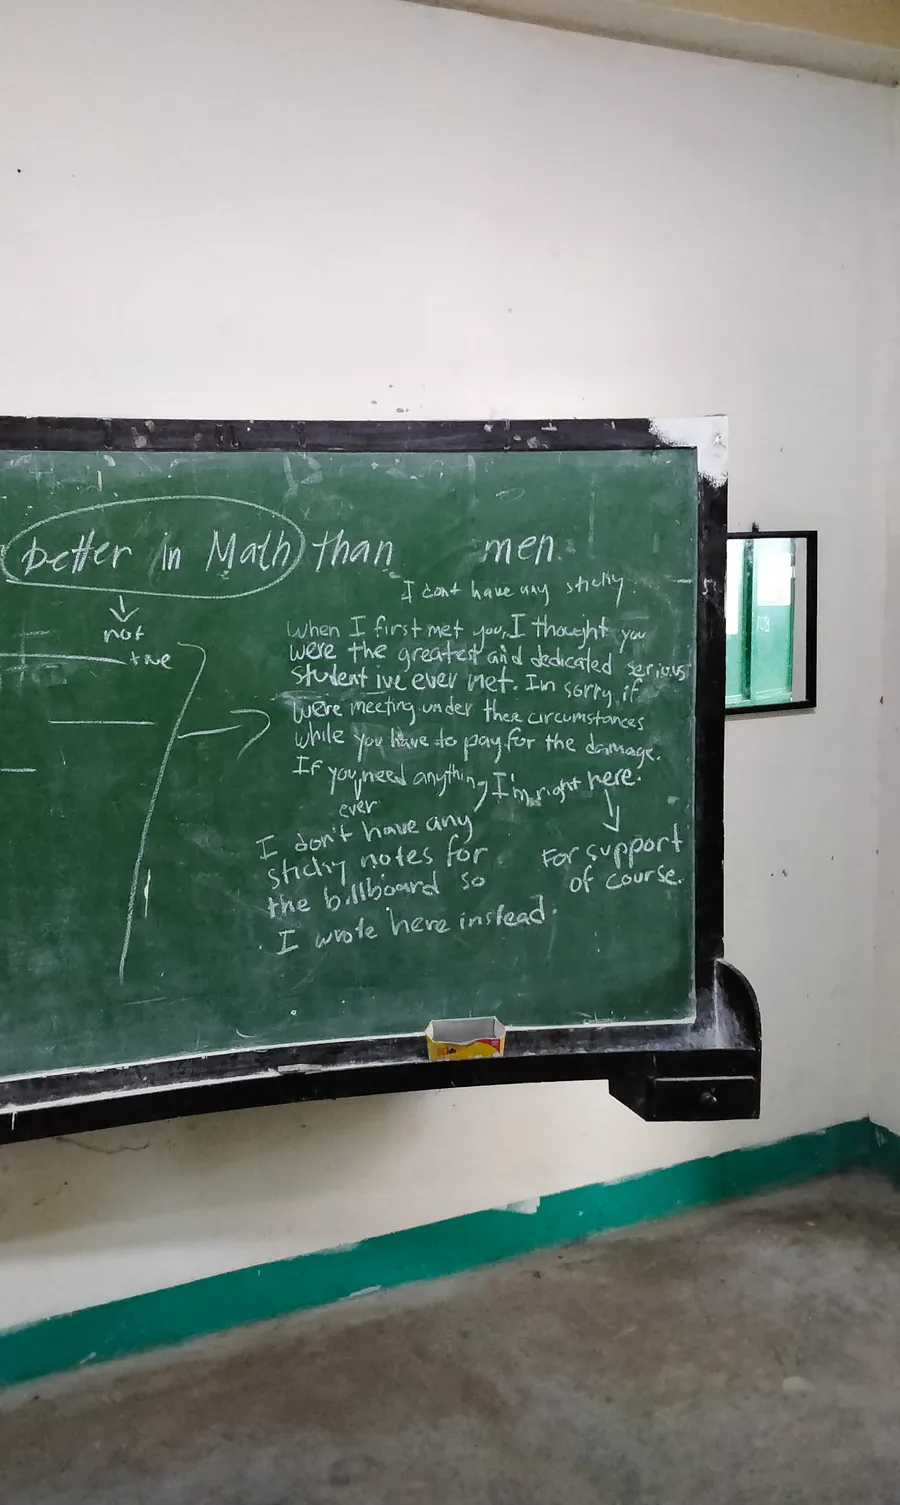 better in Math than men.
I dont have any sticky
not
true
When I first met you, I thought you
were the greatest and dedicated serious
student ive ever met. Im sorry if
were meeting under thee circumstances
while you have to pay for the damage.
If you need anything I'm right here.
ever
For support
of course.
I don't have any
sticky notes for
the billboard so
I wrote here instead.